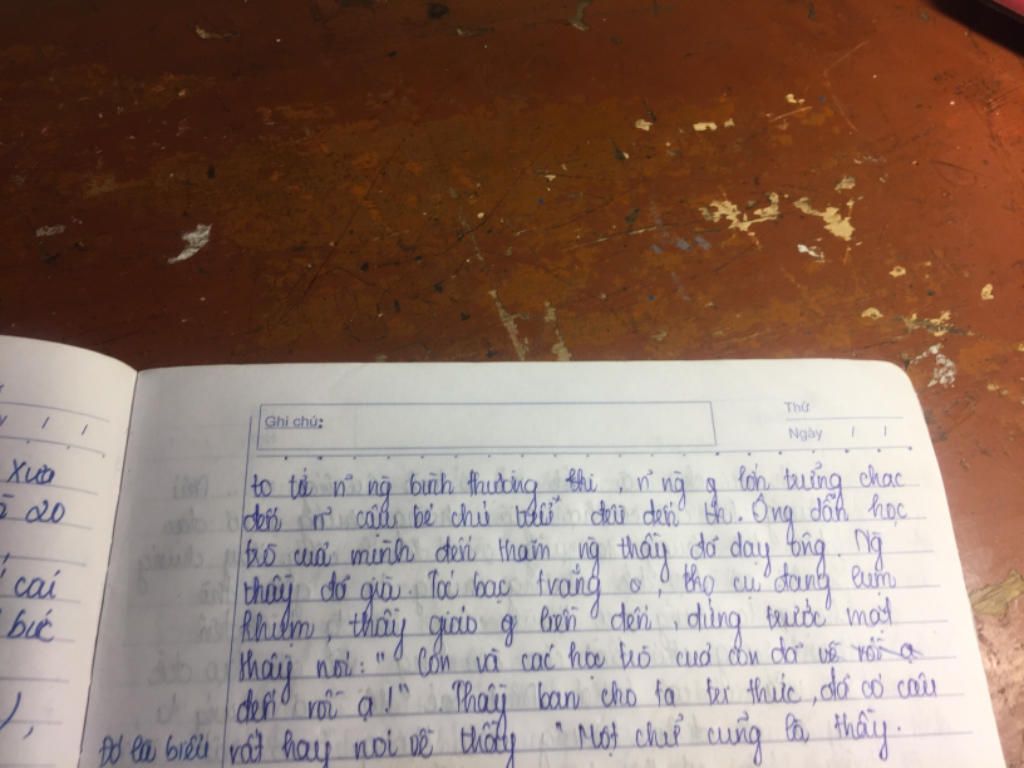 Ghi chú:
Thứ
Ngày / /
Xưa
20
cái
bức
to tá n~ ng bình thường thi, n~ ng g lớn tưởng chac
đến n~ câu bé chủ đều đến th. Ông dẫn học
trò của mình đến thăm ng thầy đó dạy ông. Ng
thầy đó già. Toć bạc trắng o, thọ cụ đang lụm
khụm, thầy giáo g đến, đứng trước mặt
thầy nói: " Con và các học trò của con đã về rồi ạ
đến rồi ạ!" Thầy ban cho ta tri thức, đó có câu
Đó là biểu rất hay noi về thầy "Một chữ cũng là thầy.